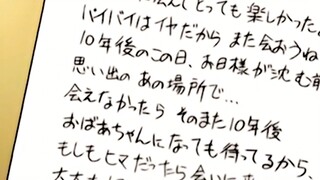 とっても楽しかった
バイバイはイヤだから また会おうね
10年後のこの日、お日様が沈む前
思い出の あの場所で…
会えなかったら そのまた10年後
おばあちゃんになっても待ってるから、
もしもヒマだったら会いに来